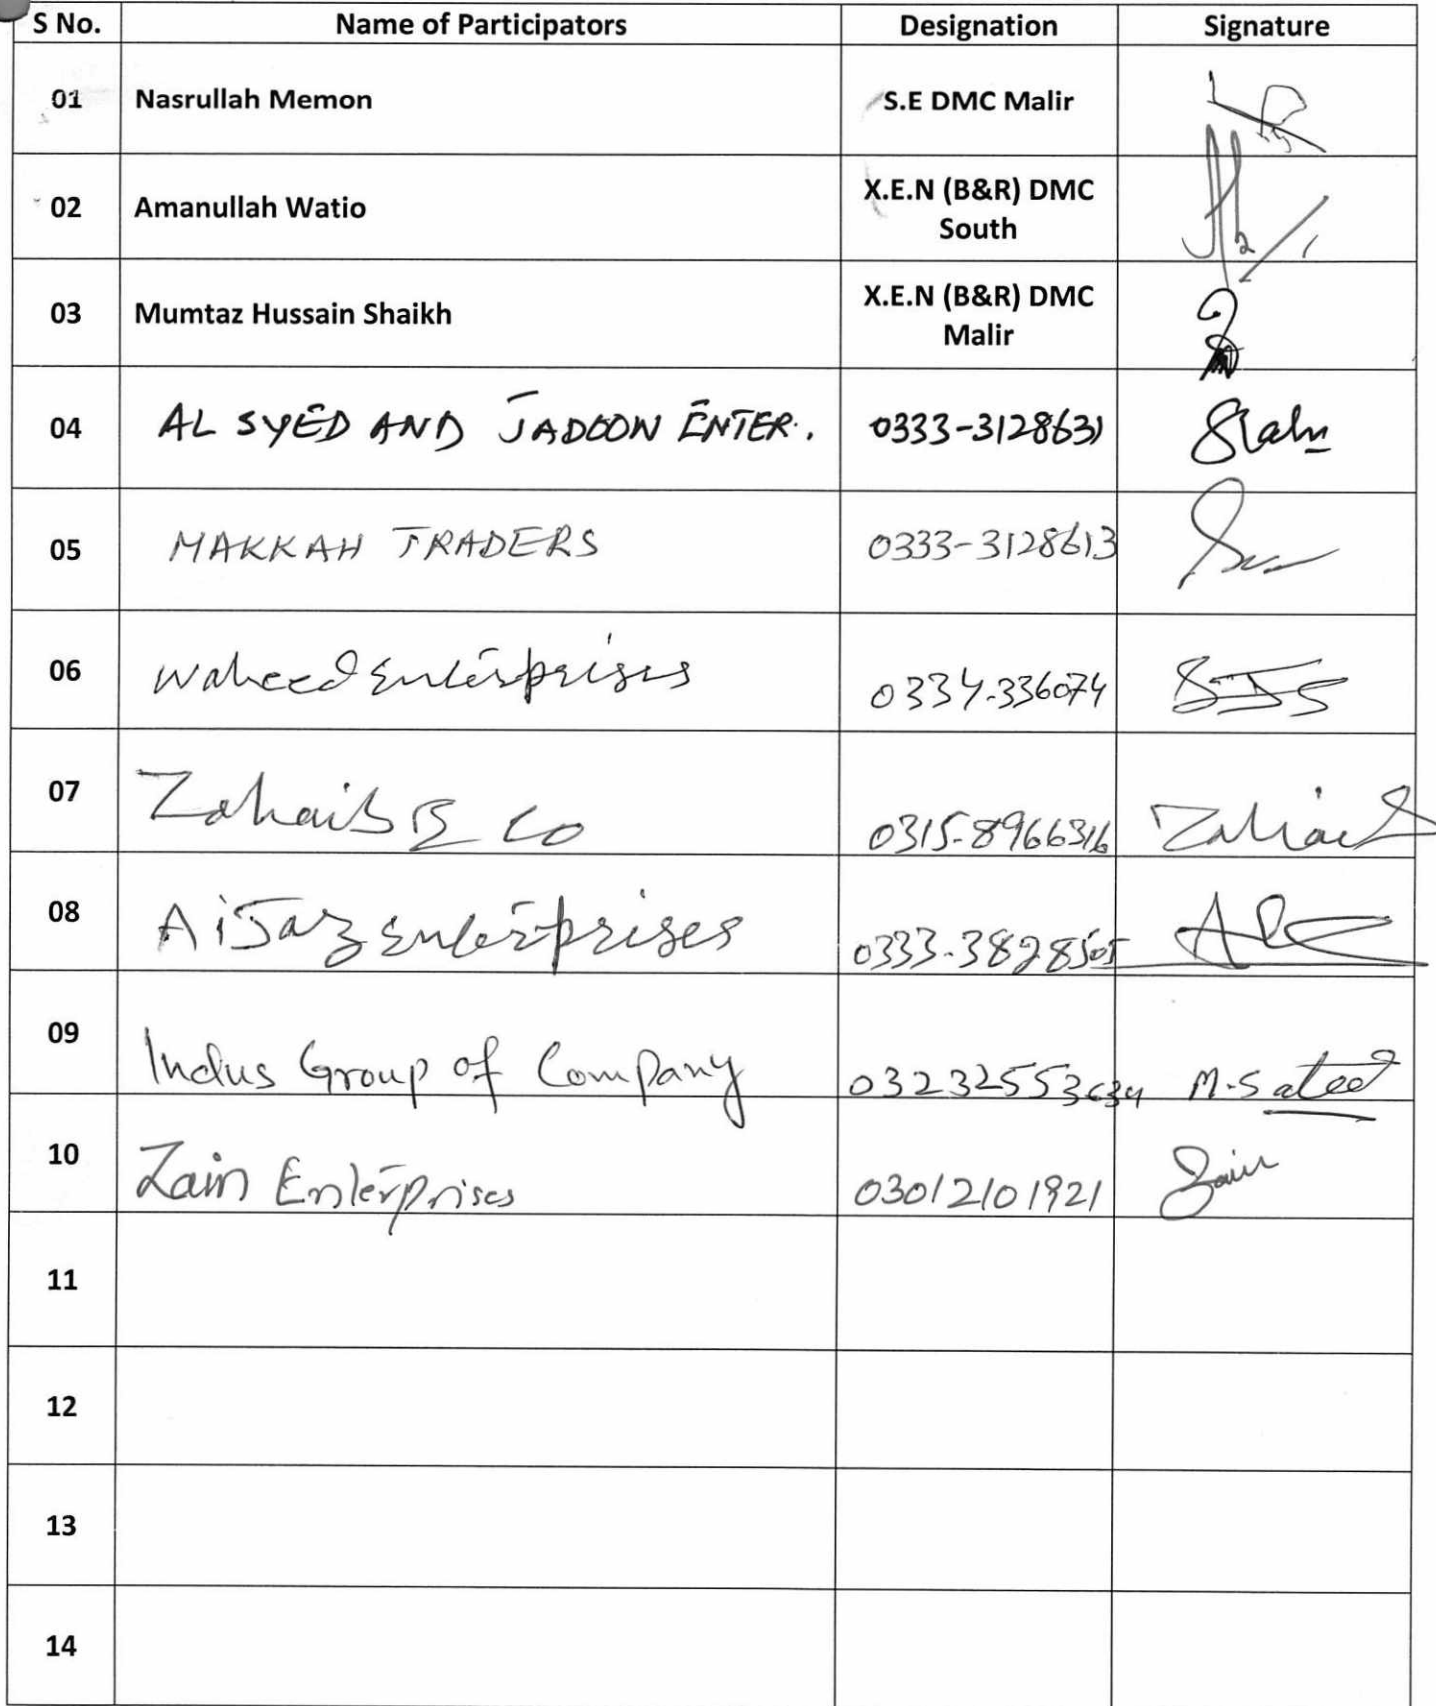 S No. Name of Participators Designation Signature
01 Nasrullah Memon S.E DMC Malir
02 Amanullah Watio X.E.N (B&R) DMC
South
03 Mumtaz Hussain Shaikh X.E.N (B&R) DMC
Malir
04 AL SYED AND JADOON ENTER. 0333-3128631
05 MAKKAH TRADERS 0333-3128613
06 Waheed Enterprises 0334-336074
07 Zohaib & Co 0315-8966316
08 AiJaz Enterprises 0333-3828505
09 Indus Group of Company 03232553634
10 Zain Enterprises 03012101921 Zain
11
12
13
14